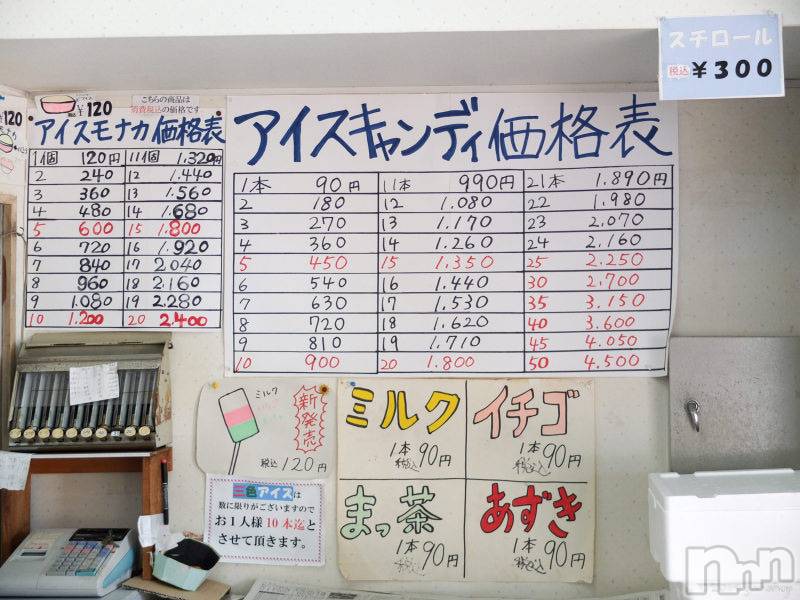 スチロール
税込 ¥300
¥120
こちらの商品は
消費税込の価格です
120
アイスモナカ価格表
1個 120円 11個 1.320円
2 240 12 1.440
3 360 13 1.560
4 480 14 1.680
5 600 15 1.800
6 720 16 1.920
7 840 17 2.040
8 960 18 2.160
9 1.080 19 2.280
10 1.200 20 2.400
アイスキャンディ価格表
1本 90円 11本 990円 21本 1.890円
2 180 12 1.080 22 1.980
3 270 13 1.170 23 2.070
4 360 14 1.260 24 2.160
5 450 15 1.350 25 2.250
6 540 16 1.440 30 2.700
7 630 17 1.530 35 3.150
8 720 18 1.620 40 3.600
9 810 19 1.710 45 4.050
10 900 20 1.800 50 4.500
ミルク
新発売
税込 120円
二色アイスは
数に限りがございますので
お1人様 10本迄と
させて頂きます。
ミルク
1本 税込 90円
イチゴ
1本 税込 90円
まっ茶
1本 税込 90円
あずき
1本 税込 90円